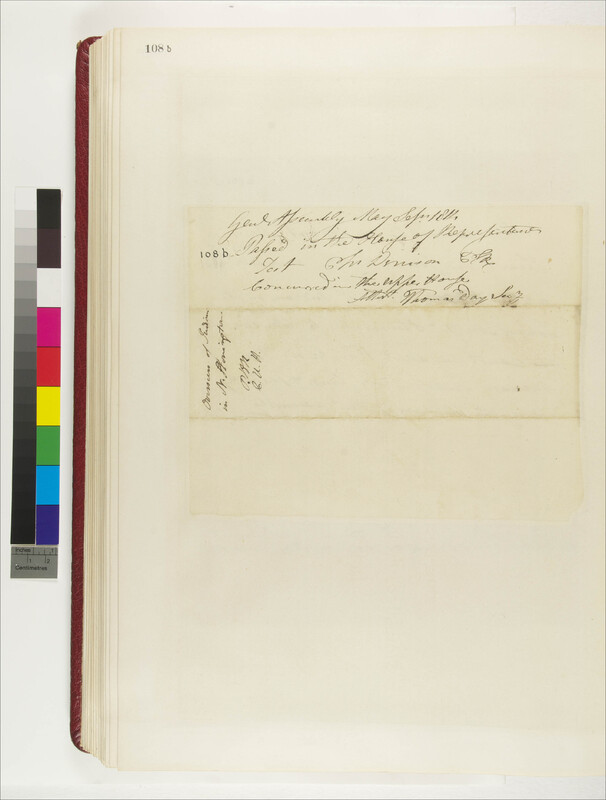 108 b
Genl Assembly May Sessn 181
108 b.
Passed in the House of Representatives
Test Chs Denison Clk
Concurred in the Upper House
Attest. Thomas Day Secy
Overseer of Indians
in N. Stonington
P. H R
C. U. H.
Inches 1
1 2
Centimetres